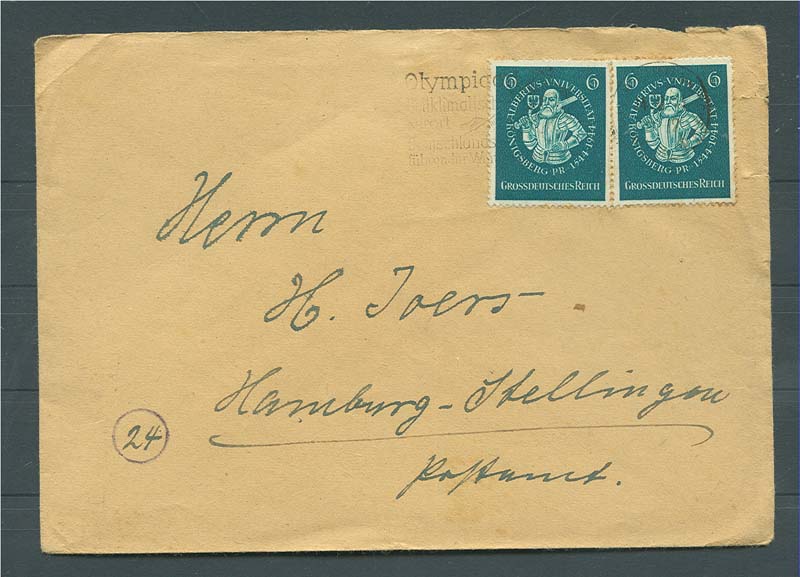 Olympia
6 6
ALBERTVS-VNIVERSITÄT
KÖNIGSBERG PR · 1544-1944
GROSSDEUTSCHES REICH
6 6
ALBERTVS-VNIVERSITÄT
KÖNIGSBERG PR · 1544-1944
GROSSDEUTSCHES REICH
Herrn
H. Joers
Hamburg-Stellingen
24
Postamt.